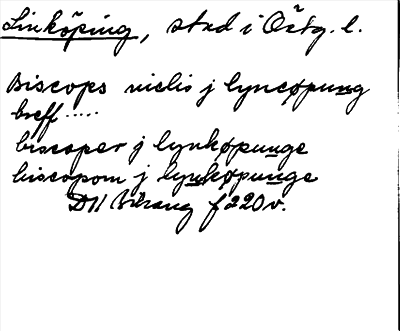 Linköping, stad i Östg. l.
Biscops nielis j lyncøpung
breff .....
biscoper j lynkøpunge
biscopom j lynkøpunge
DII Bihang f 220 v.